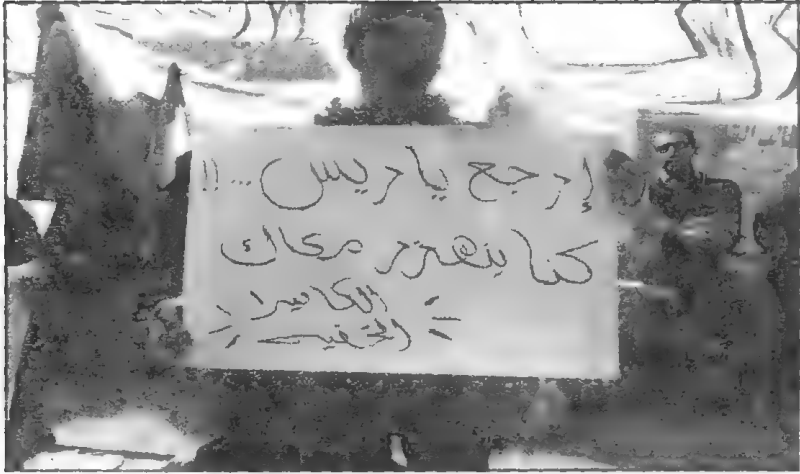 إرجع يا ريس ...!!
كنا بنهزر معاك
الكاميرا
الخفيه